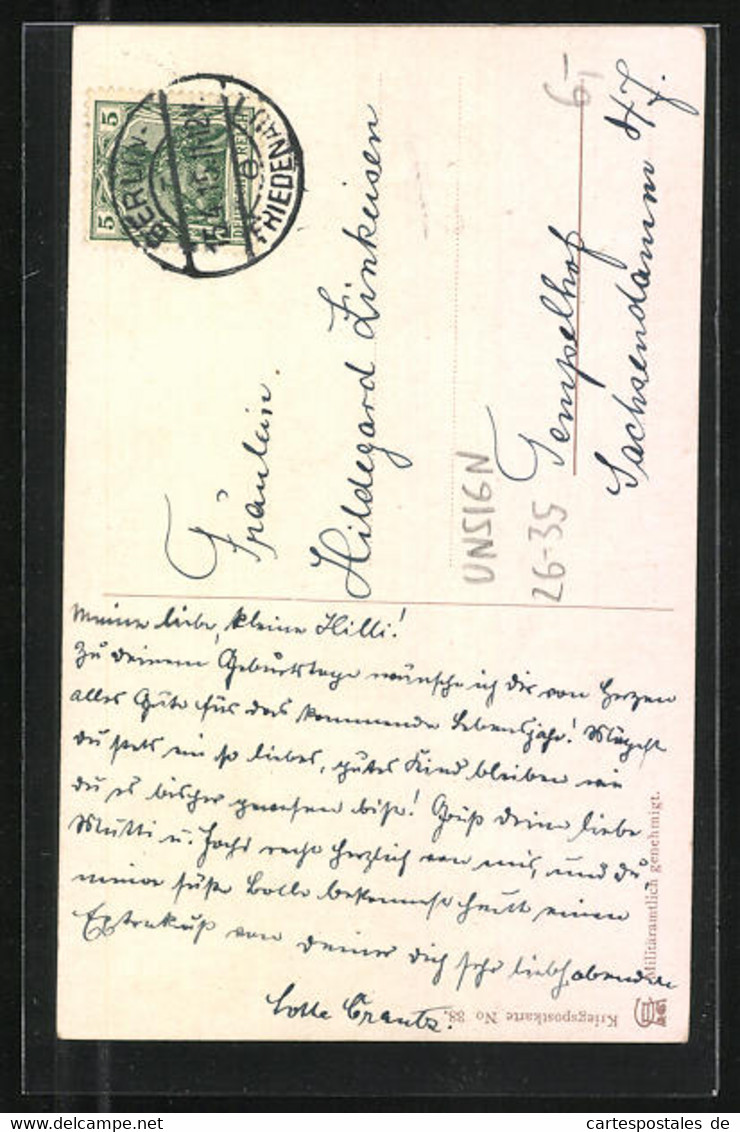 5 5
DEUTSCHES REICH
BERLIN-
15.4.15. 11-12V.
FRIEDENAU 1
6,-
Fräulein.
Hildegard Linkeisen
Tempelhof
Sachsendamm 47.
UNSIGN
26-35
Meine liebe, kleine Hilli!
Zu deinem Geburtstage wünsche ich dir von Herzen
alles Gute für das kommende Lebensjahr! Mögest
du stets ein so liebes, gutes Kind bleiben wie
du es bisher gewesen bist! Grüß deine liebe
Mutti u. recht herzlich von mir, und du,
meine süße bekommst heute einen
Extrakuß von deiner dich sehr liebhabenden
Lotte Crantz.
Militäramtlich genehmigt.
Kriegspostkarte No 88.
cartespostales de
www.delcampe.net